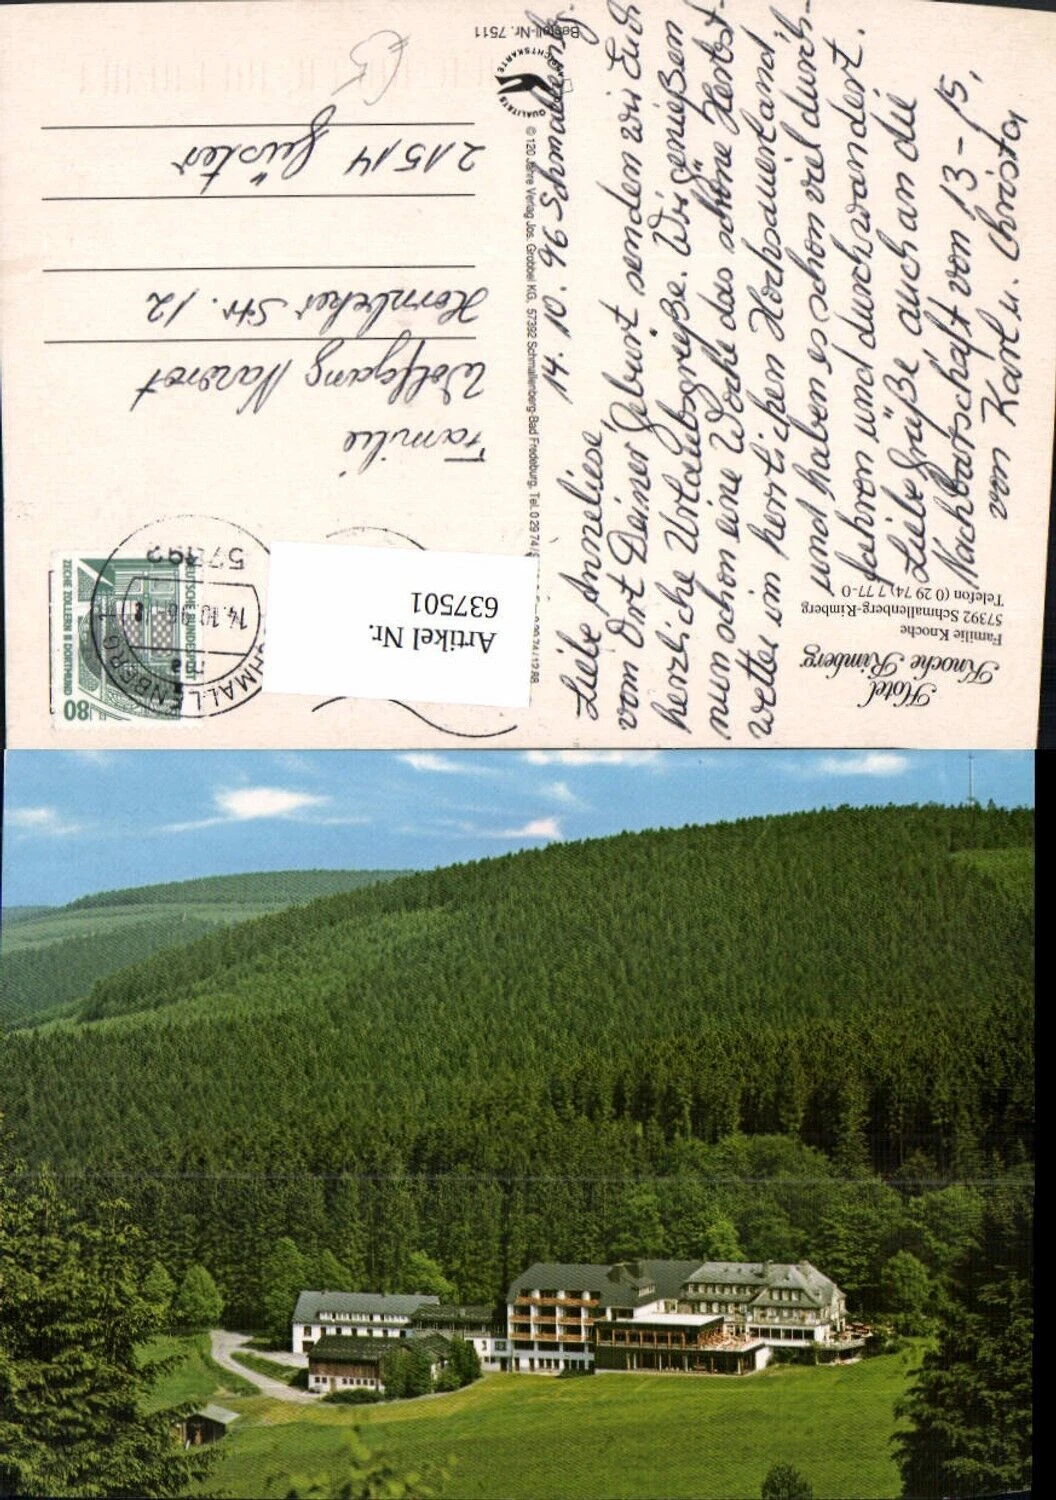 Hotel
Knoche Rimberg
Familie Knoche
57392 Schmallenberg-Rimberg
Telefon (0 29 74) 7 77-0
14. 10. 96 Schmallenbg.
Liebe Anneliese,
vom Ort Deiner Geburt senden wir Euch
herzliche Urlaubsgrüße. Wir genießen
nun schon eine Woche das schöne Herbst-
wetter im herrlichen Hochsauerland,
und haben es schon viel durch-
fahren und durchwandert.
Liebe Grüße, auch an die
Nachbarschaft von 13 – 15,
von Karl u. Christa
Bestell-Nr. 7511
QUALITÄTS
© 120 Jahre Verlag Jos. Grobbel KG, 57392 Schmallenberg-Bad Fredeburg, Tel. 0 29 74/
DEUTSCHE BUNDESPOST
ZECHE ZOLLERN II DORTMUND
80
SCHMALLENBERG 1
14.10.96
57392
Artikel Nr.
637501
Familie
Wolfgang Nawrot
Hornbeker Str. 12
21514 Güster